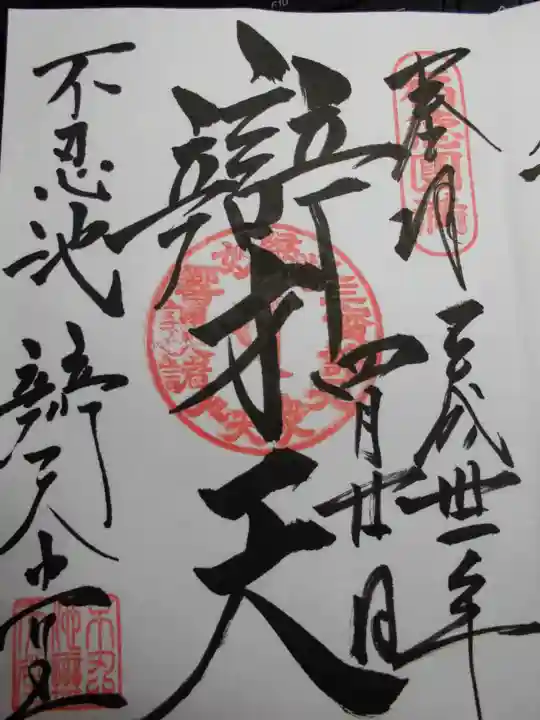 奉拝
平成卅一年
四月廿日
辯才天
不忍池辯天堂